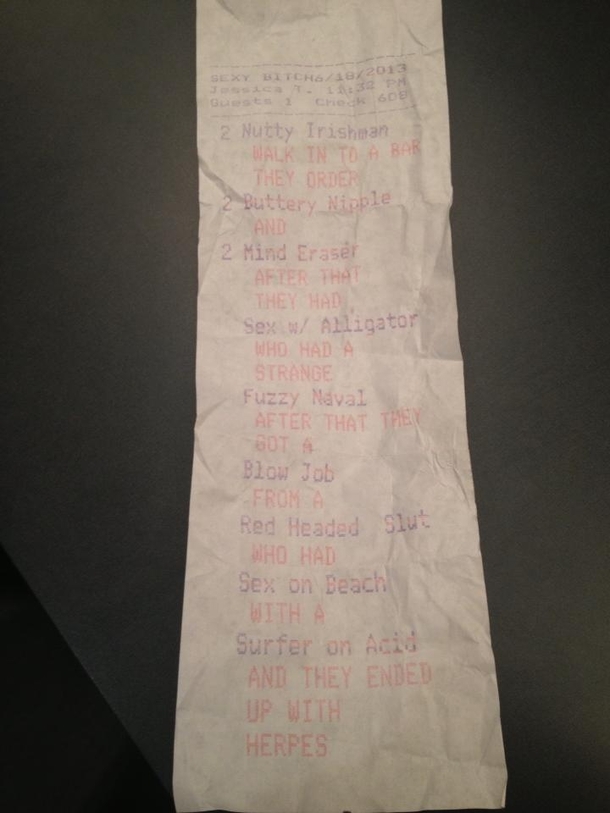 SEXY BITCH6/18/2013
Jessica T. 11:32 PM
Guests 1 Check 608
2 Nutty Irishman
WALK IN TO A BAR
THEY ORDER
2 Buttery Nipple
AND
2 Mind Eraser
AFTER THAT
THEY HAD
Sex w/ Alligator
WHO HAD A
STRANGE
Fuzzy Naval
AFTER THAT THEY
GOT A
Blow Job
FROM A
Red Headed Slut
WHO HAD
Sex on Beach
WITH A
Surfer on Acid
AND THEY ENDED
UP WITH
HERPES